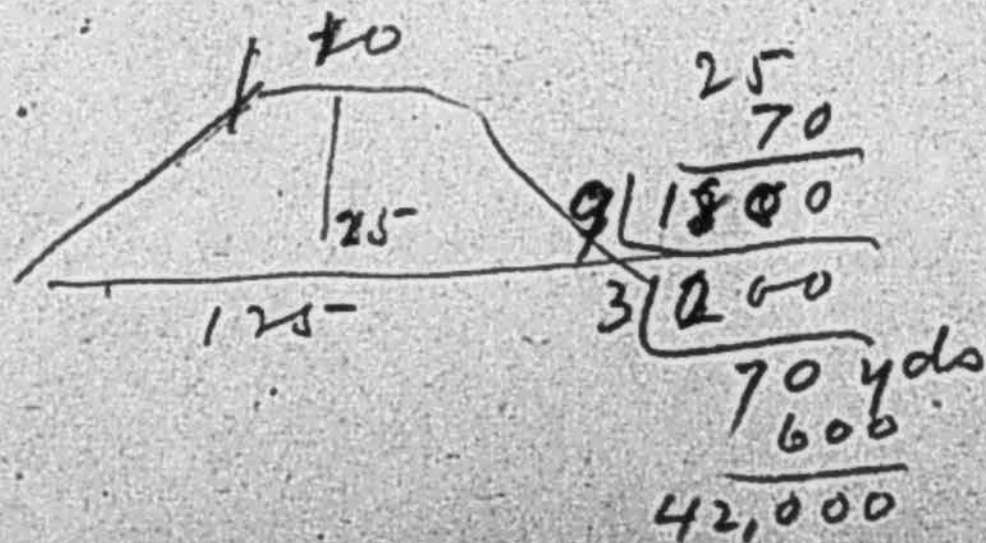 10
25
125
25
70
9 1800
3 200
70 yds
600
42,000